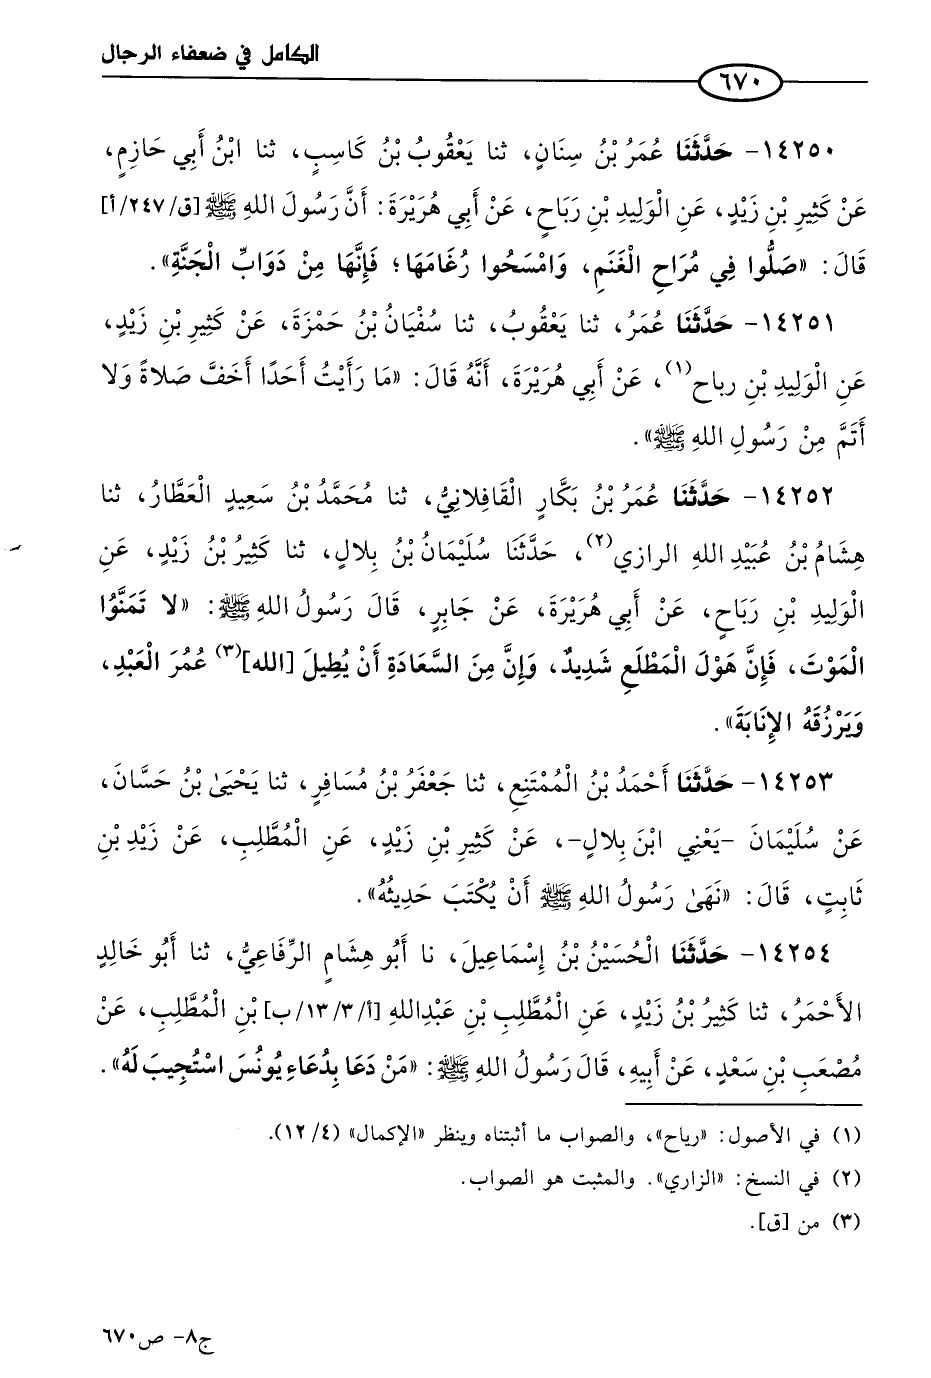 الكامل في ضعفاء الرجال
٦٧٠
١٤٢٥٠- حَدَّثَنَا عُمَرُ بْنُ سِنَانٍ، ثنا يَعْقُوبُ بْنُ كَاسِبٍ، ثنا ابْنُ أَبِي حَازِمٍ،
عَنْ كَثِيرِ بْنِ زَيْدٍ، عَنِ الْوَلِيدِ بْنِ رَبَاحٍ، عَنْ أَبِي هُرَيْرَةَ: أَنَّ رَسُولَ اللهِ ﷺ [ق/٢٤٧/أ]
قَالَ: «صَلُّوا فِي مُرَاحِ الْغَنَمِ، وَامْسَحُوا رُغَامَهَا؛ فَإِنَّهَا مِنْ دَوَابِّ الْجَنَّةِ».
١٤٢٥١- حَدَّثَنَا عُمَرُ، ثنا يَعْقُوبُ، ثنا سُفْيَانُ بْنُ حَمْزَةَ، عَنْ كَثِيرِ بْنِ زَيْدٍ،
عَنِ الْوَلِيدِ بْنِ رباح(١)، عَنْ أَبِي هُرَيْرَةَ، أَنَّهُ قَالَ: «مَا رَأَيْتُ أَحَدًا أَخَفَّ صَلاةً وَلا
أَتَمَّ مِنْ رَسُولِ اللهِ ﷺ».
١٤٢٥٢- حَدَّثَنَا عُمَرُ بْنُ بَكَّارٍ الْقَافِلانِيُّ، ثنا مُحَمَّدُ بْنُ سَعِيدٍ الْعَطَّارُ، ثنا
هِشَامُ بْنُ عُبَيْدِ اللهِ الرازي(٢)، حَدَّثَنَا سُلَيْمَانُ بْنُ بِلالٍ، ثنا كَثِيرُ بْنُ زَيْدٍ، عَنِ
الْوَلِيدِ بْنِ رَبَاحٍ، عَنْ أَبِي هُرَيْرَةَ، عَنْ جَابِرٍ، قَالَ رَسُولُ اللهِ ﷺ: «لا تَمَنَّوُا
الْمَوْتَ، فَإِنَّ هَوْلَ الْمَطْلَعِ شَدِيدٌ، وَإِنَّ مِنَ السَّعَادَةِ أَنْ يُطِيلَ [الله](٣) عُمُرَ الْعَبْدِ،
وَيَرْزُقَهُ الإِنَابَةَ».
١٤٢٥٣- حَدَّثَنَا أَحْمَدُ بْنُ الْمُمْتَنِعِ، ثنا جَعْفَرُ بْنُ مُسَافِرٍ، ثنا يَحْيَىٰ بْنُ حَسَّانَ،
عَنْ سُلَيْمَانَ -يَعْنِي ابْنَ بِلالٍ-، عَنْ كَثِيرِ بْنِ زَيْدٍ، عَنِ الْمُطَّلِبِ، عَنْ زَيْدِ بْنِ
ثَابِتٍ، قَالَ: «نَهَىٰ رَسُولُ اللهِ ﷺ أَنْ يُكْتَبَ حَدِيثُهُ».
١٤٢٥٤- حَدَّثَنَا الْحُسَيْنُ بْنُ إِسْمَاعِيلَ، نا أَبُو هِشَامٍ الرِّفَاعِيُّ، ثنا أَبُو خَالِدٍ
الأَحْمَرُ، ثنا كَثِيرُ بْنُ زَيْدٍ، عَنِ الْمُطَّلِبِ بْنِ عَبْدِاللهِ [أ/٣/١٣/ب] بْنِ الْمُطَّلِبِ، عَنْ
مُصْعَبِ بْنِ سَعْدٍ، عَنْ أَبِيهِ، قَالَ رَسُولُ اللهِ ﷺ: «مَنْ دَعَا بِدُعَاءِ يُونُسَ اسْتُجِيبَ لَهُ».
(١) في الأصول: «رياح»، والصواب ما أثبتناه وينظر «الإكمال» (١٢/٤).
(٢) في النسخ: «الزاري». والمثبت هو الصواب.
(٣) من [ق].
ج٨- ص٦٧٠